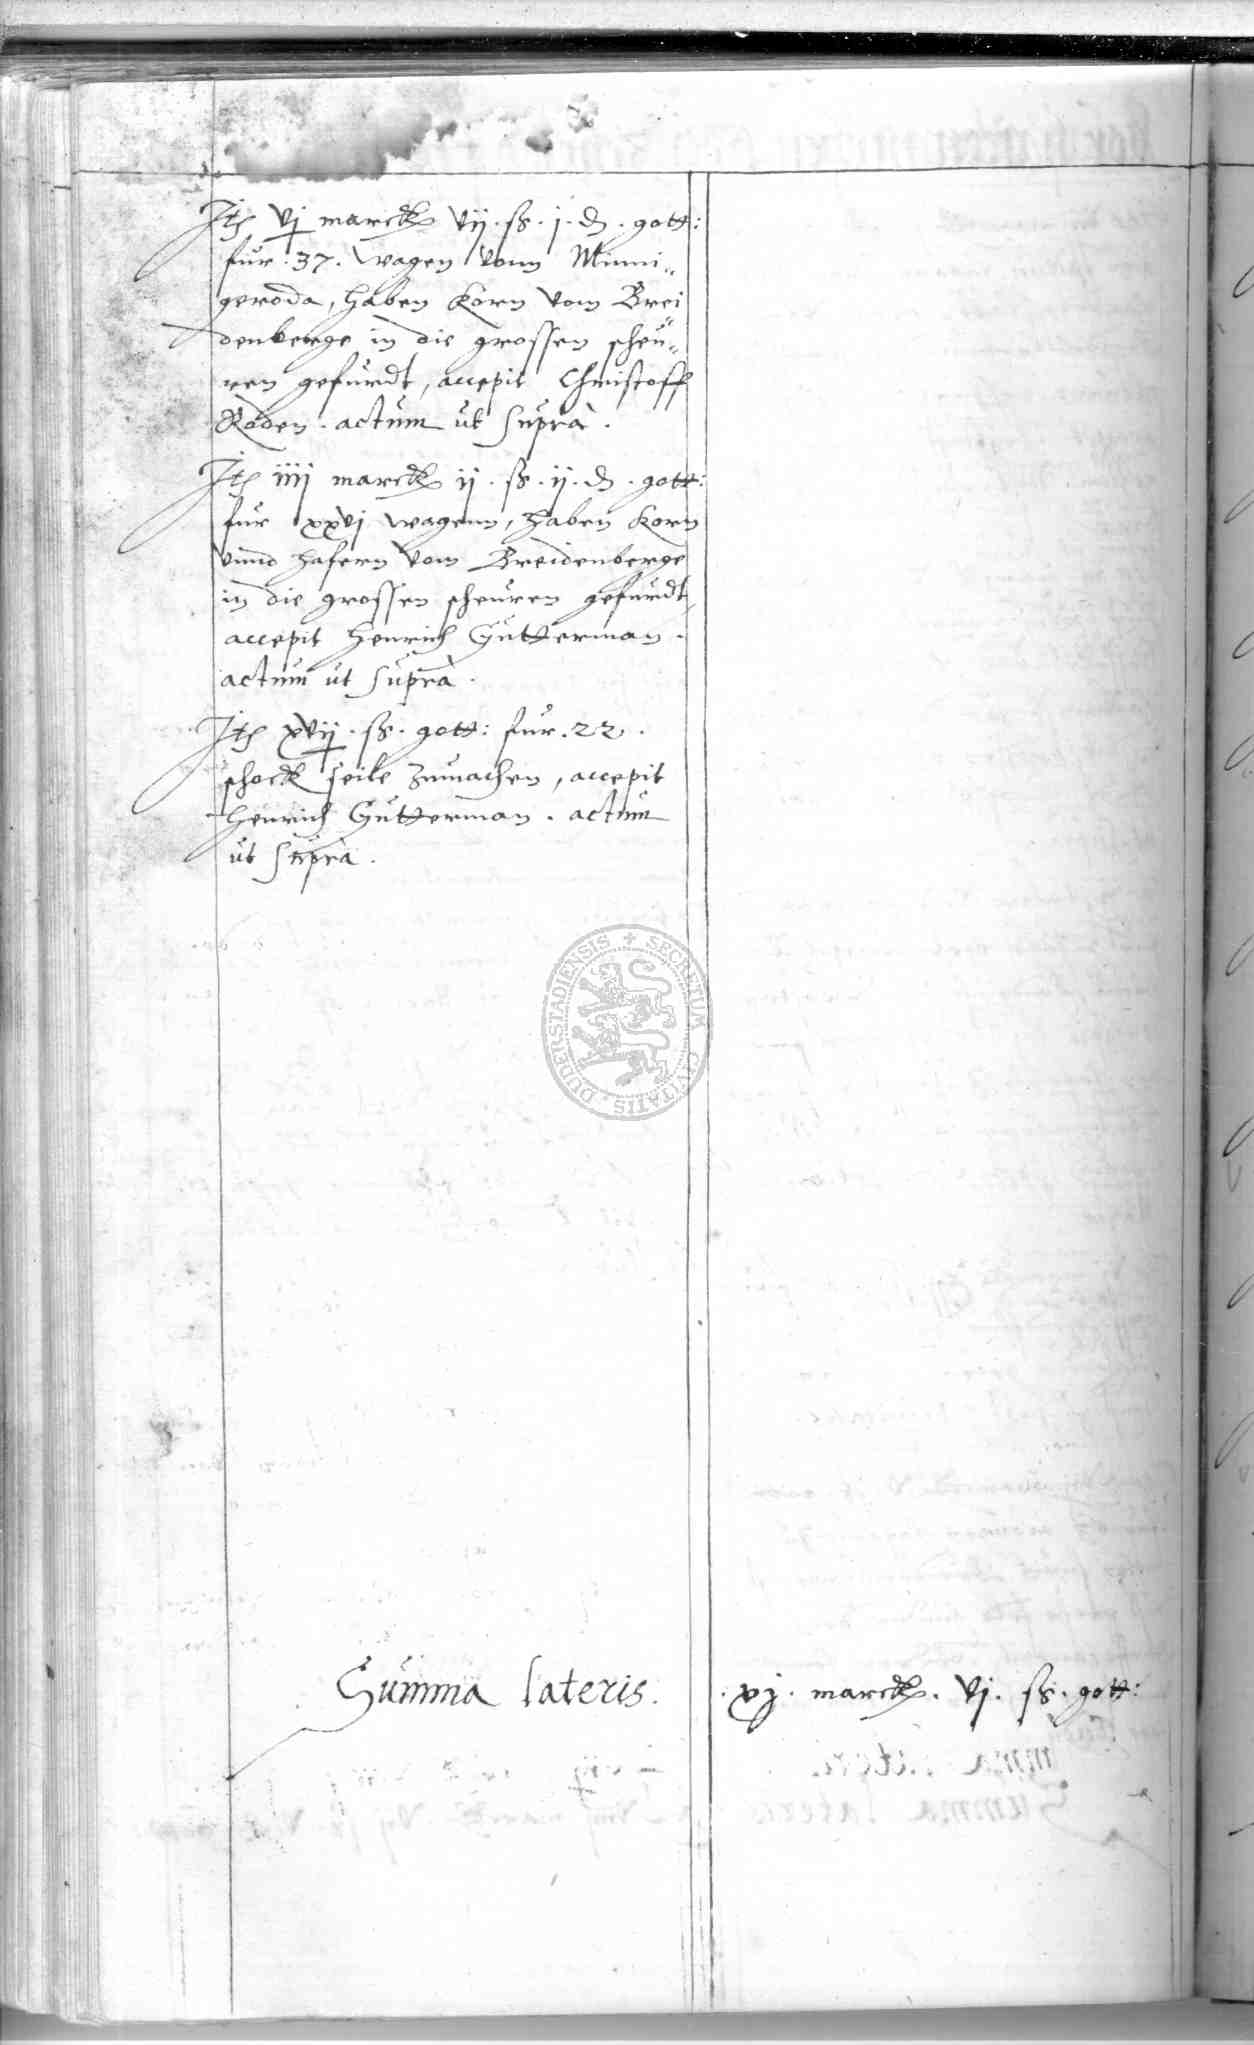 Jt vj marck vij · ß · j · ₰ · gott:
für · 37 · wagen vonn Minni=
geroda, haben korn vom Brei
denberge in die grossen scheü=
ren gefürdt, accepit Christoff
Röden · actum ut suprà ·
Jt iiij marck ij · ß · ij · ₰ · gott:
für xxvj wagenn, haben korn
vnnd hafern vom Breidenberge
in die grossen scheüren gefürdt,
accepit Henrich Gütterman ·
actum ut suprà ·
Jt xvij · ß · gott: für · 22 ·
schock seile zumachen, accepit
Henrich Gütterman · actum
ut suprà ·
SECRETUM CIVITATIS DUDERSTADIENSIS
Summa lateris · xj · marck · vj · ß · gott: